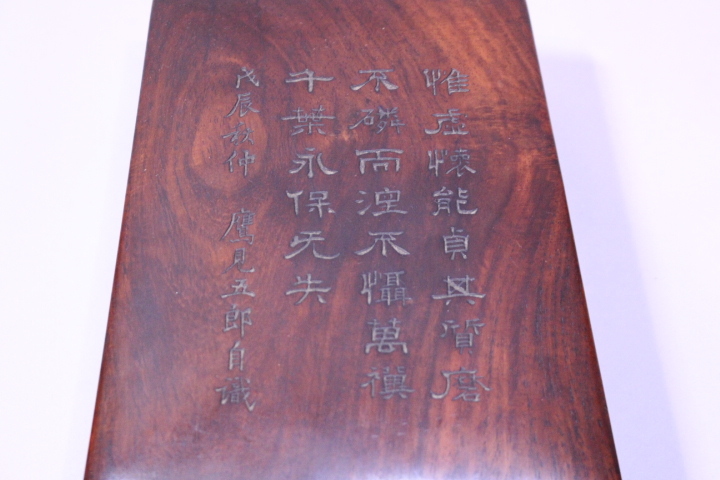 惟虚懷能貞其質磨
不磷而涅不懾萬禩
千葉永保无失
戊辰秋仲　鷹見五郎自識